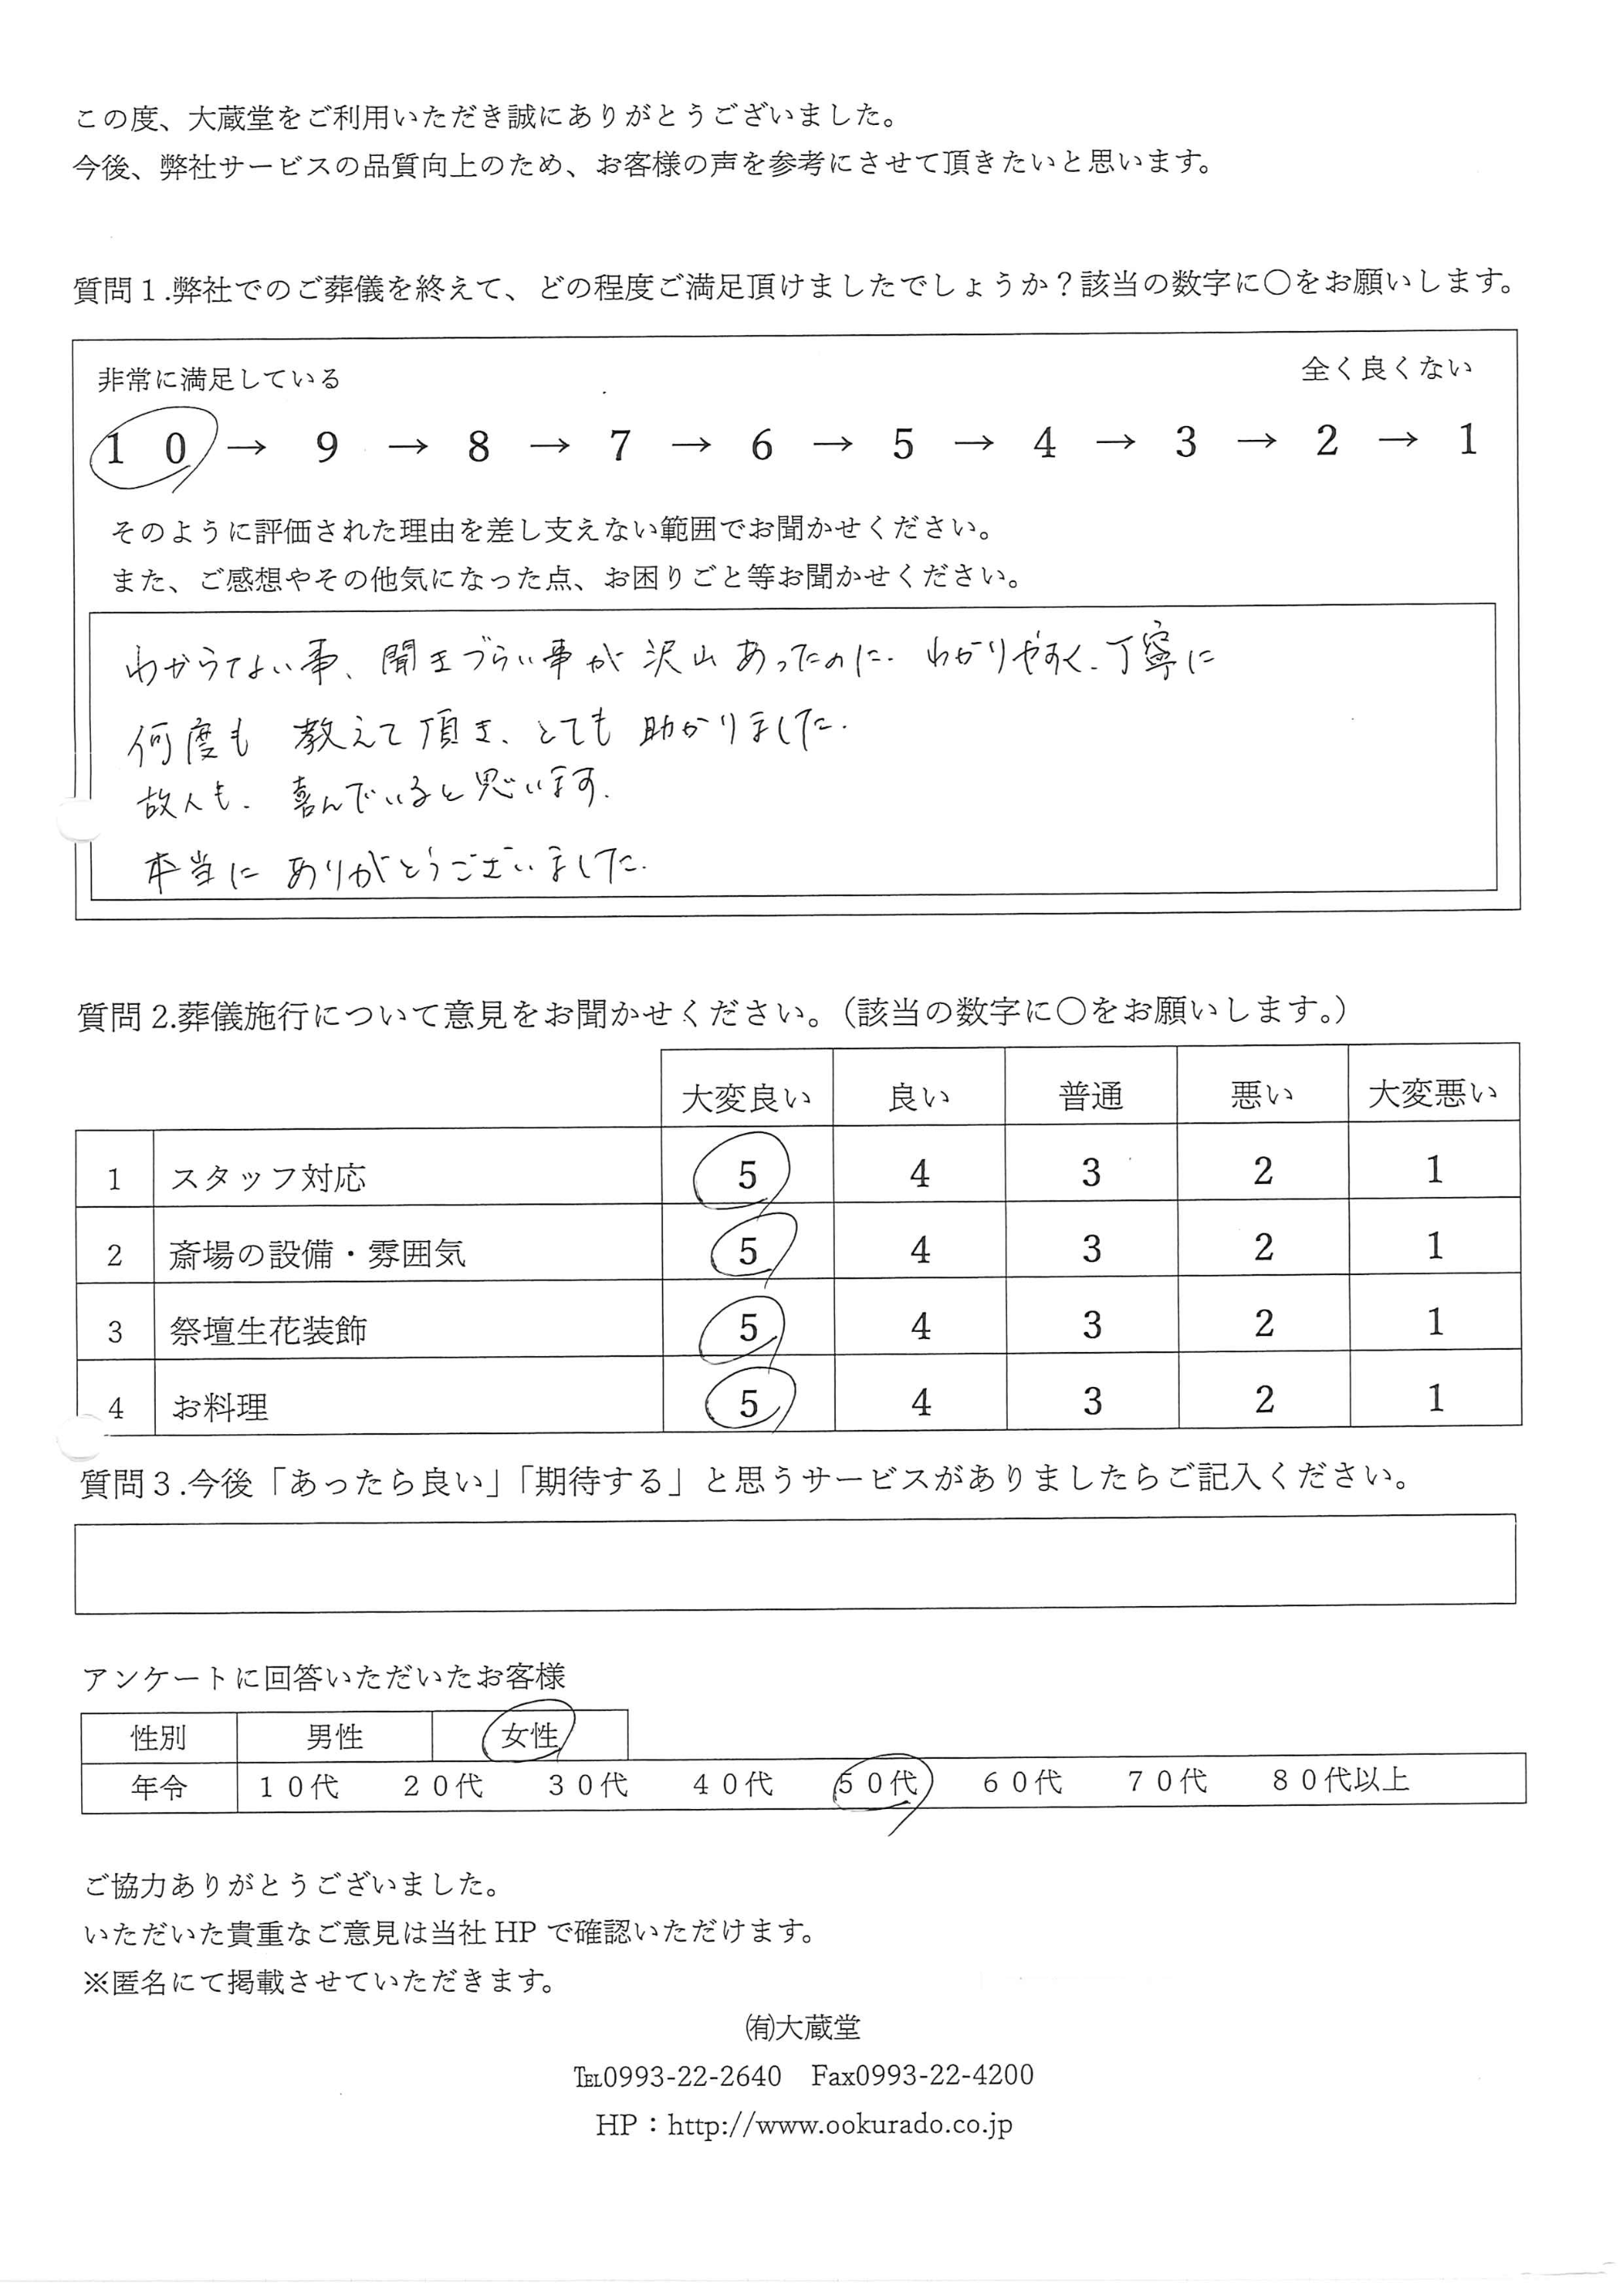 この度、大蔵堂をご利用いただき誠にありがとうございました。
今後、弊社サービスの品質向上のため、お客様の声を参考にさせて頂きたいと思います。
質問１.弊社でのご葬儀を終えて、どの程度ご満足頂けましたでしょうか？該当の数字に〇をお願いします。
非常に満足している 全く良くない
１０ → 9 → 8 → 7 → 6 → 5 → 4 → 3 → 2 → 1
そのように評価された理由を差し支えない範囲でお聞かせください。
また、ご感想やその他気になった点、お困りごと等お聞かせください。
わからない事、聞きづらい事が沢山あったのに、わかりやすく、丁寧に
何度も 教えて頂き、とても 助かりました。
故人も、喜んでいると思います。
本当に ありがとうございました。
質問 2.葬儀施行について意見をお聞かせください。（該当の数字に〇をお願いします。）
大変良い 良い 普通 悪い 大変悪い
1 スタッフ対応 5 4 3 2 1
2 斎場の設備・雰囲気 5 4 3 2 1
3 祭壇生花装飾 5 4 3 2 1
4 お料理 5 4 3 2 1
質問３.今後「あったら良い」「期待する」と思うサービスがありましたらご記入ください。
アンケートに回答いただいたお客様
性別 男性 女性
年令 １０代 ２０代 ３０代 ４０代 ５０代 ６０代 ７０代 ８０代以上
ご協力ありがとうございました。
いただいた貴重なご意見は当社 HP で確認いただけます。
※匿名にて掲載させていただきます。
㈲大蔵堂
℡0993-22-2640 Fax0993-22-4200
HP：http://www.ookurado.co.jp